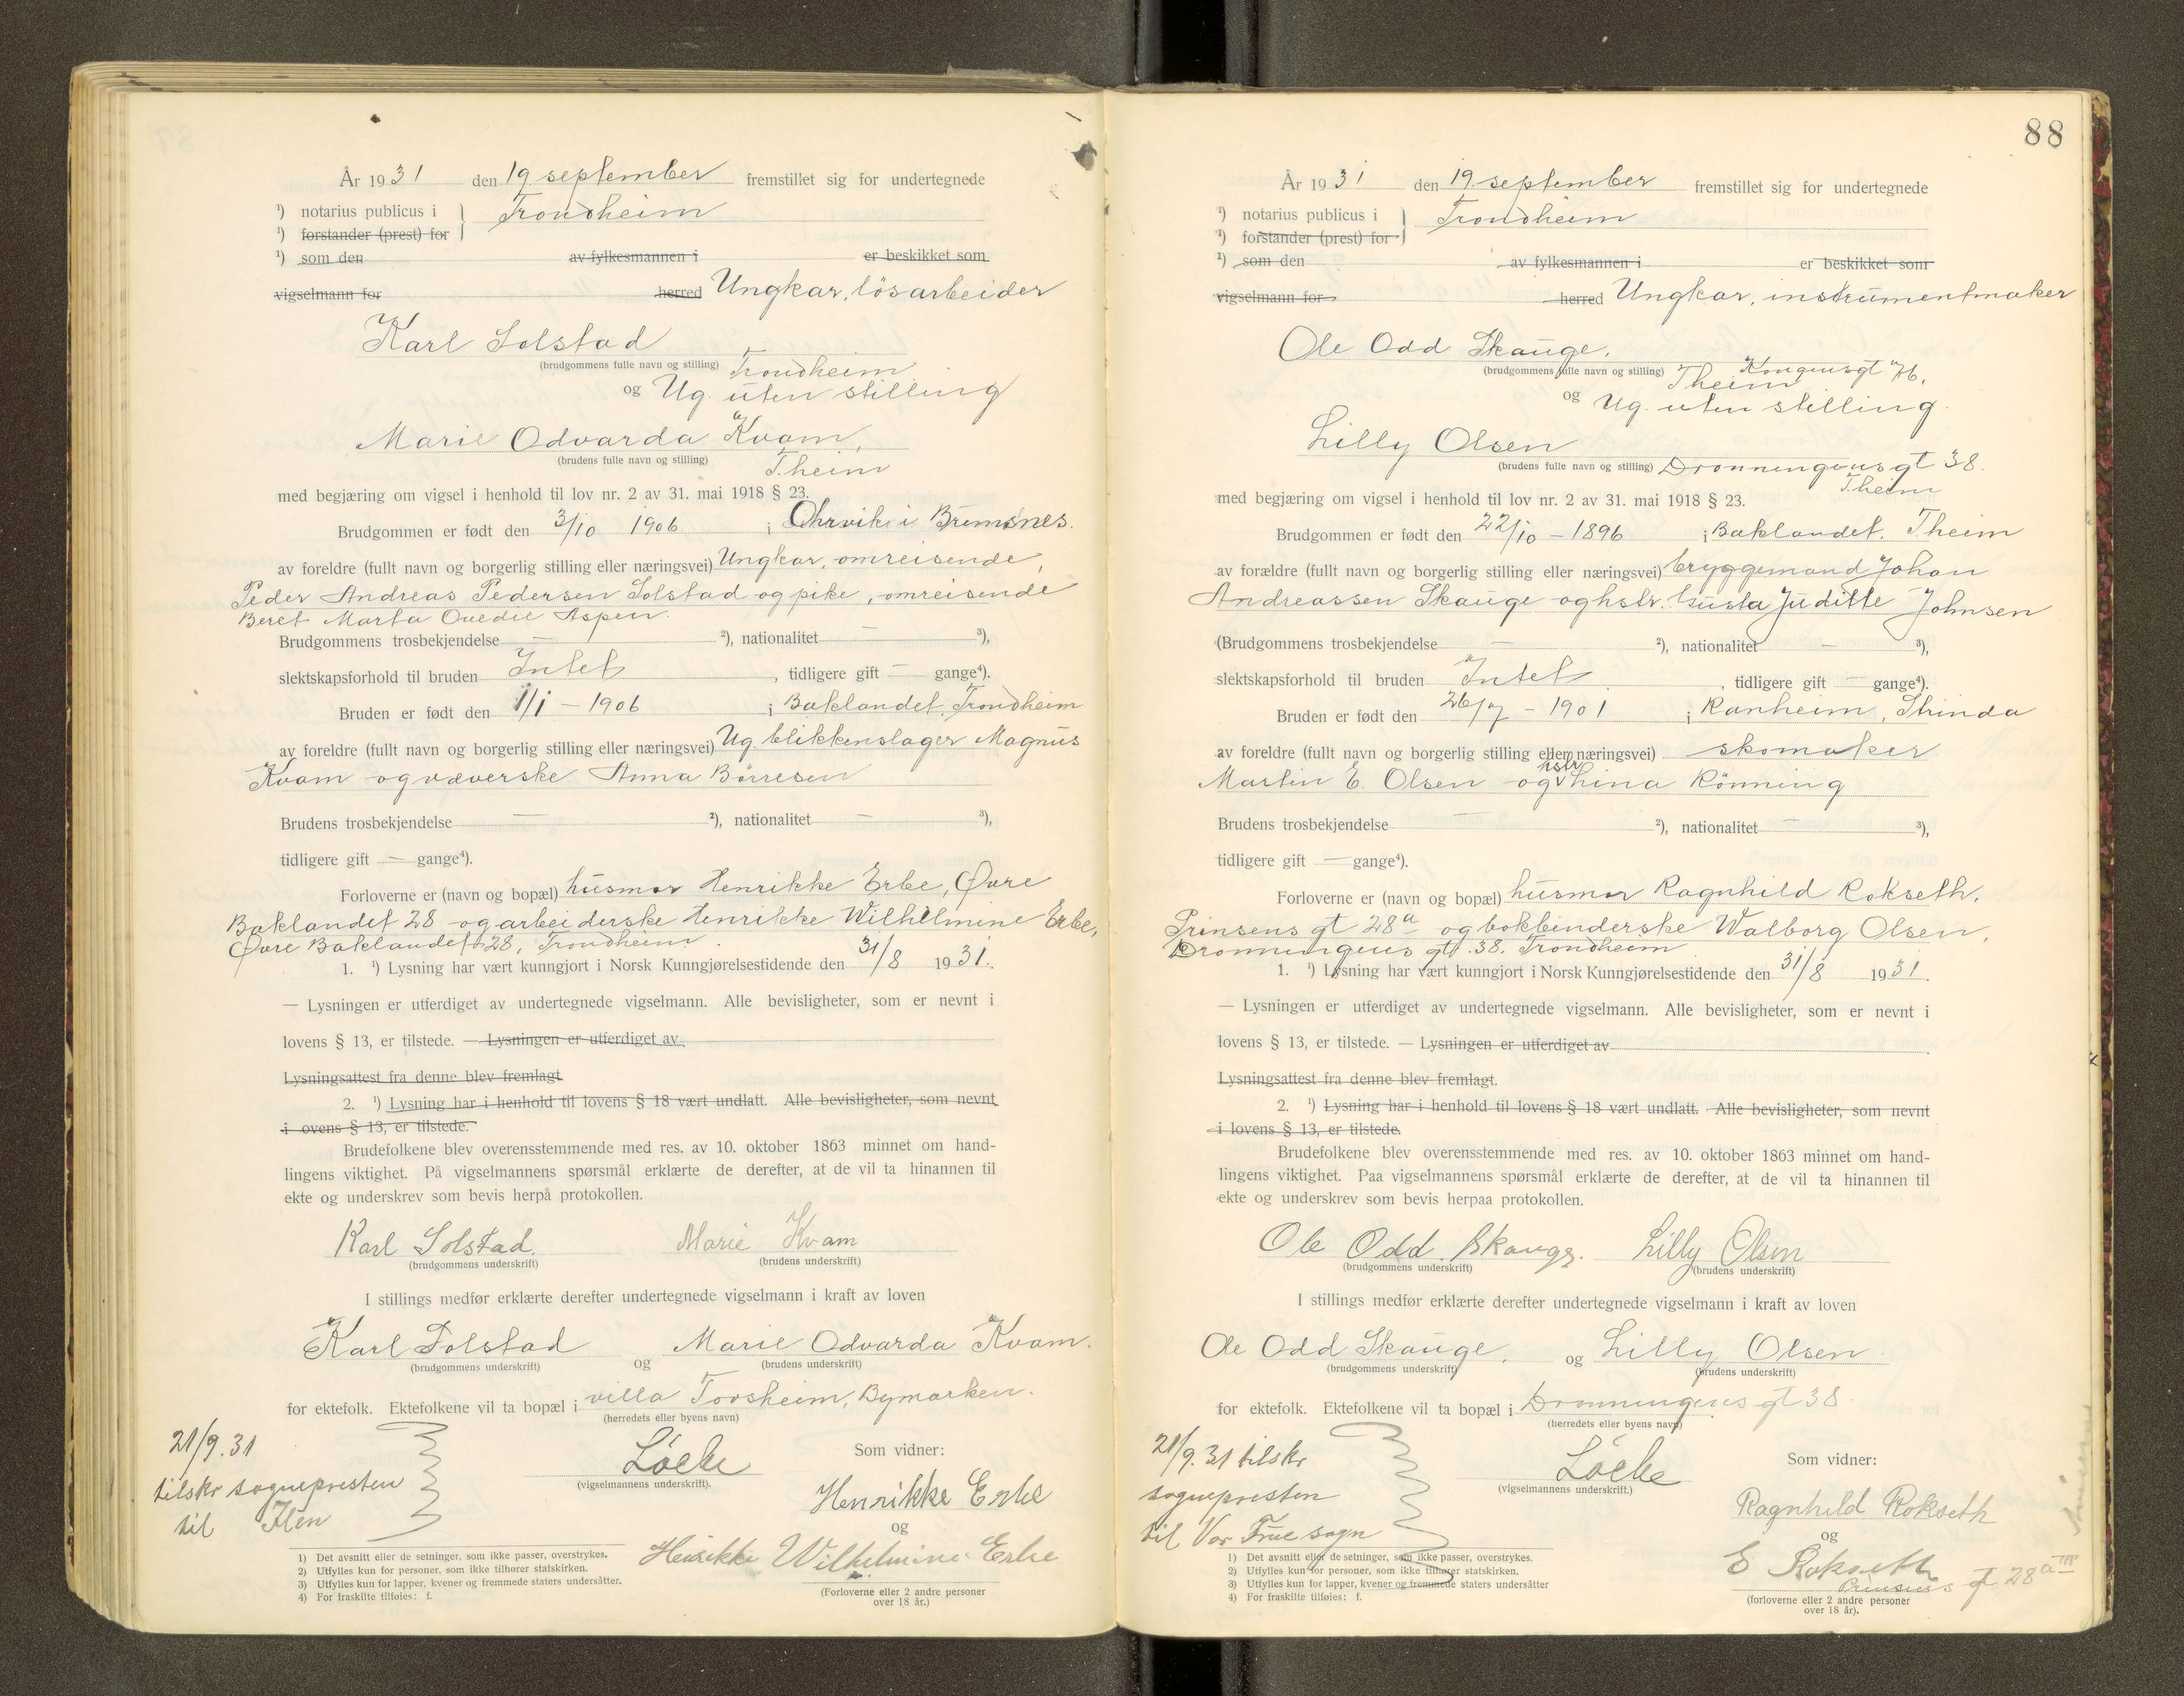 År 1931 den 19. september fremstillet sig for undertegnede
¹) notarius publicus i Trondheim
¹) forstander (prest) for
¹) som den av fylkesmannen i er beskikket som
vigselmann for herred Ungkar, løsarbeider
Karl Solstad
(brudgommens fulle navn og stilling) Trondheim
og Ug. uten stilling
Marie Odvarda Kvam,
(brudens fulle navn og stilling) T.heim
med begjæring om vigsel i henhold til lov nr. 2 av 31. mai 1918 § 23.
Brudgommen er født den 3/10 1906 i Ohrvik i Bremsnes.
av foreldre (fullt navn og borgerlig stilling eller næringsvei) Ungkar, omreisende,
Peder Andreas Pedersen Solstad og pike, omreisende
Beret Marta Ovedie Aspen.
Brudgommens trosbekjendelse — ²), nationalitet — ³),
slektskapsforhold til bruden Intet, tidligere gift — gange⁴).
Bruden er født den 1/1 – 1906 i Baklandet, Trondheim
av foreldre (fullt navn og borgerlig stilling eller næringsvei) Ug. blikkenslager Magnus
Kvam og væverske Anna Børresen
Brudens trosbekjendelse — ²), nationalitet — ³),
tidligere gift — gange⁴).
Forloverne er (navn og bopæl) husmor Henrikke Erbe, Øvre
Baklandet 28 og arbeiderske Henrikke Wilhelmine Erbe,
Øvre Baklandet 28, Trondheim.
1. ¹) Lysning har vært kunngjort i Norsk Kunngjørelsestidende den 31/8 1931.
— Lysningen er utferdiget av undertegnede vigselmann. Alle bevisligheter, som er nevnt i
lovens § 13, er tilstede. — Lysningen er utferdiget av
Lysningsattest fra denne blev fremlagt
2. ¹) Lysning har i henhold til lovens § 18 vært undlatt. Alle bevisligheter, som nevnt
i ovens § 13, er tilstede.
Brudefolkene blev overensstemmende med res. av 10. oktober 1863 minnet om hand-
lingens viktighet. På vigselmannens spørsmål erklærte de derefter, at de vil ta hinannen til
ekte og underskrev som bevis herpå protokollen.
Karl Solstad. Marie Kvam
(brudgommens underskrift) (brudens underskrift)
I stillings medfør erklærte derefter undertegnede vigselmann i kraft av loven
Karl Solstad og Marie Odvarda Kvam.
(brudgommens underskrift) (brudens underskrift)
for ektefolk. Ektefolkene vil ta bopæl i villa Torsheim, Bymarken.
(herredets eller byens navn)
21/9.31
tilskr sognepresten
til Ilen
Løcke
(vigselmannens underskrift).
Som vidner:
Henrikke Erbe
og
Henrikke Wilhelmine Erbe
(Forloverne eller 2 andre personer
over 18 år.)
1) Det avsnitt eller de setninger, som ikke passer, overstrykes.
2) Utfylles kun for personer, som ikke tilhører statskirken.
3) Utfylles kun for lapper, kvener og fremmede staters undersåtter.
4) For fraskilte tilføies: f.
88
År 1931 den 19. september fremstillet sig for undertegnede
¹) notarius publicus i Trondheim
¹) forstander (prest) for
¹) som den av fylkesmannen i er beskikket som
vigselmann for herred Ungkar, instrumentmaker
Ole Odd Skauge.
(brudgommens fulle navn og stilling) Kongensgt 76,
T.heim
og Ug. uten stilling.
Lilly Olsen
(brudens fulle navn og stilling) Dronningens gt 38.
T.heim
med begjæring om vigsel i henhold til lov nr. 2 av 31. mai 1918 § 23.
Brudgommen er født den 22/10 – 1896 i Baklandet, T.heim
av forældre (fullt navn og borgerlig stilling eller næringsvei) bryggemand Johan
Andreassen Skauge og hstr. Gusta Juditte Johnsen
(Brudgommens trosbekjendelse — ²), nationalitet — ³),
slektskapsforhold til bruden Intet, tidligere gift — gange⁴).
Bruden er født den 26/7 – 1901 i Ranheim, Strinda
av foreldre (fullt navn og borgerlig stilling eller næringsvei) skomaker
Martin E. Olsen og hstr Lina Rönning
Brudens trosbekjendelse — ²), nationalitet — ³),
tidligere gift — gange⁴).
Forloverne er (navn og bopæl) husmor Ragnhild Rokseth,
Prinsens gt 28a og bokbinderske Walborg Olsen,
Dronningens gt. 38. Trondheim
1. ¹) Lysning har vært kunngjort i Norsk Kunngjørelsestidende den 31/8 1931.
— Lysningen er utferdiget av undertegnede vigselmann. Alle bevisligheter, som er nevnt i
lovens § 13, er tilstede. — Lysningen er utferdiget av
Lysningsattest fra denne blev fremlagt.
2. ¹) Lysning har i henhold til lovens § 18 vært undlatt. Alle bevisligheter, som nevnt
i lovens § 13, er tilstede.
Brudefolkene blev overensstemmende med res. av 10. oktober 1863 minnet om hand-
lingens viktighet. Paa vigselmannens spørsmål erklærte de derefter, at de vil ta hinannen til
ekte og underskrev som bevis herpaa protokollen.
Ole Odd Skauge. Lilly Olsen
(brudgommens underskrift) (brudens underskrift)
I stillings medfør erklærte derefter undertegnede vigselmann i kraft av loven
Ole Odd Skauge. og Lilly Olsen.
(brudgommens underskrift) (brudens underskrift)
for ektefolk. Ektefolkene vil ta bopæl i Dronningens gt 38
(herredets eller byens navn)
21/9.31 tilskr
sognepresten
til Vor Frue sogn
Løcke
(vigselmannens underskrift.)
Som vidner:
Ragnhild Rokseth
og
E Rokseth
Prinsens gt 28a III
(forloverne eller 2 andre personer
over 18 år).
1) Det avsnitt eller de setninger, som ikke passer, overstrykes.
2) Utfylles kun for personer, som ikke tilhører statskirken.
3) Utfylles kun for lapper, kvener og fremmede staters undersåtter
4) For fraskilte tilføies: f.